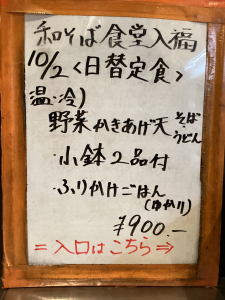 和そば食堂入福
10/2〈日替定食〉
温・冷)
野菜かきあげ天 そば・うどん
・小鉢2品付
・ふりかけごはん
(ゆかり)
¥900.—
=入口はこちら⇒